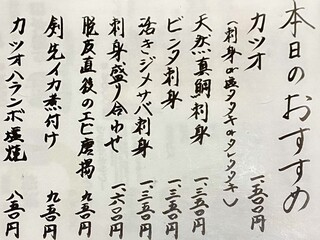 本日のおすすめ
カツオ 一、五〇〇円
(刺身or塩タタキorタレタタキ)
天然真鯛刺身 一、三五〇円
ビンタ刺身 一、三五〇円
活〆ジメサバ刺身 一、三五〇円
刺身盛り合わせ 一、六〇〇円
脱皮直後のエビ唐揚 九五〇円
剣先イカ煮付け 九五〇円
カツオハランボ塩焼 八五〇円